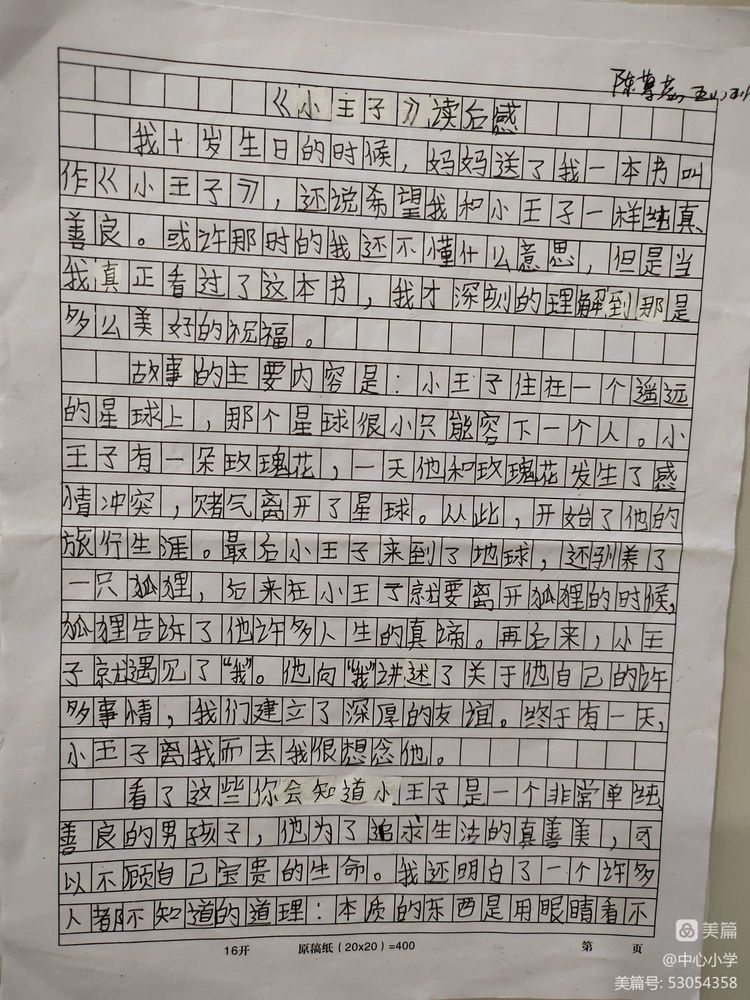 《小王子》读后感
我十岁生日的时候，妈妈送了我一本书叫
作《小王子》，还说希望我和小王子一样纯真、
善良。或许那时的我还不懂什么意思，但是当
我真正看过了这本书，我才深刻的理解到那是
多么美好的祝福。
故事的主要内容是：小王子住在一个遥远
的星球上，那个星球很小只能容下一个人。小
王子有一朵玫瑰花，一天他和玫瑰花发生了感
情冲突，赌气离开了星球。从此，开始了他的
旅行生涯。最后小王子来到了地球，还驯养了
一只狐狸，后来在小王子就要离开狐狸的时候，
狐狸告许了他许多人生的真谛。再后来，小王
子就遇见了“我”。他向“我”讲述了关于他自己的许
多事情，我们建立了深厚的友谊。终于有一天，
小王子离我而去我很想念他。
看了这些你会知道小王子是一个非常单纯
善良的男孩子，他为了追求生活的真善美，可
以不顾自己宝贵的生命。我还明白了一个许多
人都不知道的道理：本质的东西是用眼睛看不
16开 原稿纸（20x20）=400 第 页
美篇
@中心小学
美篇号: 53054358